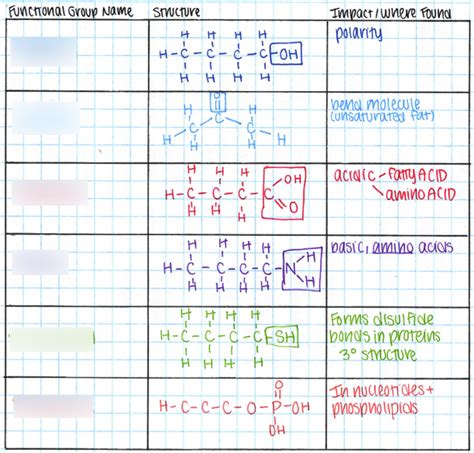 Functional Group Name Structure Impact/Where Found
H H H H
H-C-C-C-C-OH
H H H H
polarity
O
H C H
C C
H H H H
bend molecule
(unsaturated fat)
H H H OH
H-C-C-C-C
H H H O
acidic - fatty ACID
amino ACID
H H H H H
H-C-C-C-C-N
H H H H H
basic, amino acids
H H H H
H-C-C-C-C-SH
H H H H
Forms disulfide
bonds in proteins
3° structure
O
H-C-C-C-O-P-OH
OH
In nucleotides +
phospholipids